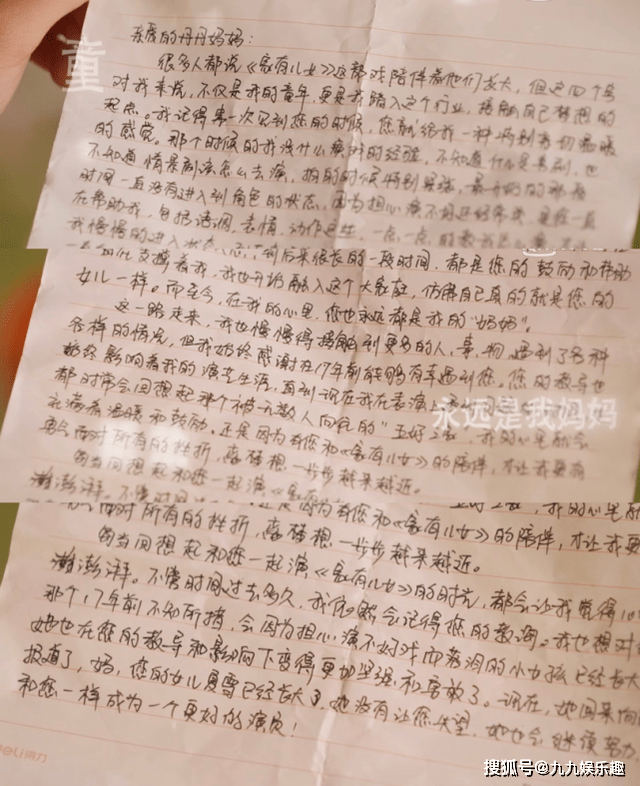 亲爱的丹丹妈妈：
很多人都说《家有儿女》这部戏陪伴着他们长大，但这四个字
对我来说，不仅是我的童年，更是我踏入这个行业，接触自己梦想的
起点。我记得第一次见到您的时候，您就给我一种特别亲切温暖
的感觉。那个时候的我没什么演戏的经验，不知道什么是喜剧，也
不知道情景剧该怎么去演，拍的时候特别紧张，最开始的那段
时间一直没有进入到角色的状态，因为担心演不好还好几次，是您一直
在帮助我，包括语调、表情、动作这些，一点一点的教我
我慢慢的进入状态，后来很长的一段时间，都是您的鼓励和帮助
支撑着我，我也开始融入这个大家庭，仿佛自己真的就是您的
女儿一样。而至今，在我的心里，您也永远都是我的“妈妈”。
这一路走来，我也慢慢得接触到更多的人，事，物，遇到了各种
各样的情况，但我始终感谢在17年前能够有幸遇到您。您的教导也
始终影响着我的演艺生涯，直到现在我在表演上
都时常会回想起那个被无数人向往的“五好之家”，我的心里就会
充满着温暖和鼓励。还是因为有您和《家有儿女》的陪伴，才让我更有
勇气面对所有的挫折，离梦想一步步越来越近。
每当回想起和您一起演《家有儿女》
澎湃。不管时间
因为有您和《家有儿女》的陪伴，才让我更
面对所有的挫折，离梦想一步步越来越近。
每当回想起和您一起演《家有儿女》的时光，都会让我觉得心
潮澎湃。不管时间过去多久，我依然会记得您的教诲。我也想对
那个17年前不知所措，会因为担心演不好戏而落泪的小女孩已经长大
她也在您的教导和影响下变得更加坚强和勇敢了。现在，她回来向
报道了，妈，您的女儿夏雪已经长大了，她没有让您失望，她也会继续努力
和您一样成为一个更好的演员！
童
永远是我妈妈
deli得力
搜狐号@九九娱乐趣